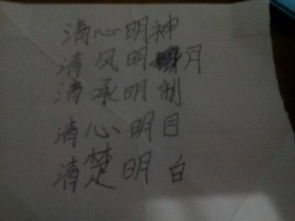 清心明神
清风明月
清承明制
清心明目
清楚明白